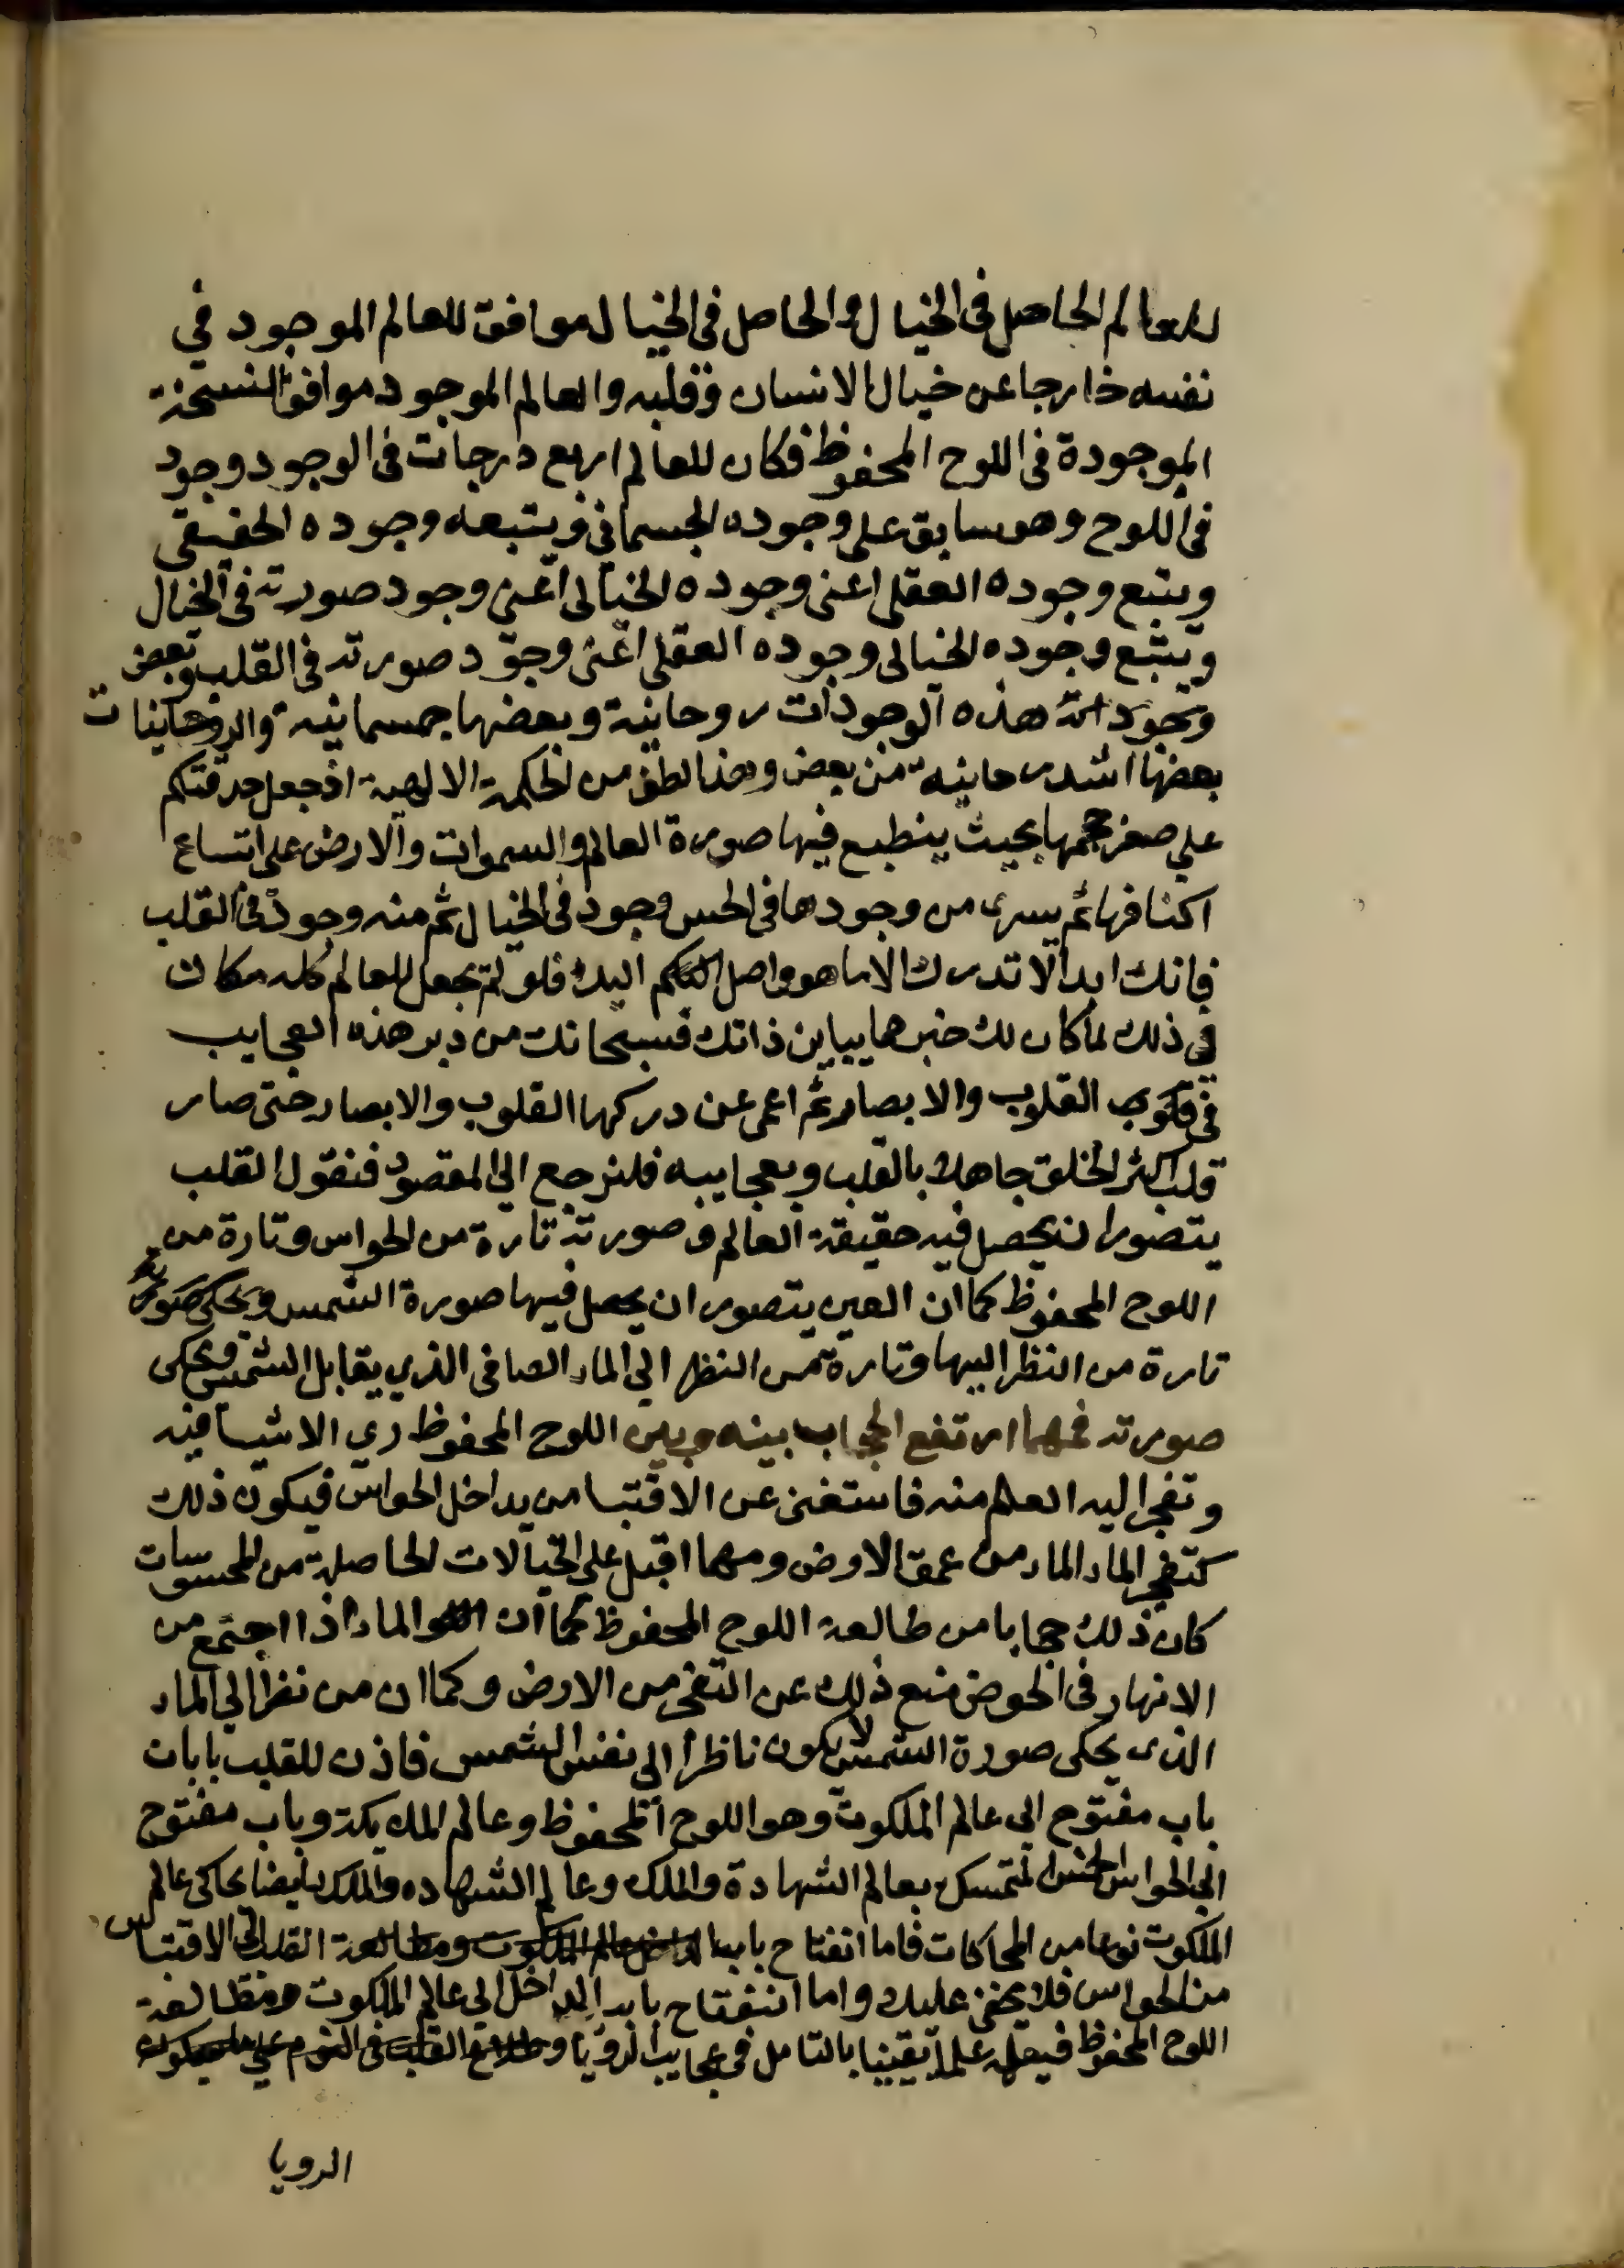 للعالم الحاصل فى الخيال والحاصل فى الخيال موافق للعالم الموجود في
نفسه خارجا عن خيال الانسان وقلبه والعالم الموجود موافق للنسخة
الموجودة فى اللوح المحفوظ فكان للعالم اربع درجات فى الوجود وجود
فى اللوح وهو سابق على وجوده الجسمانى ويتبعه وجوده الحقيقى
ويتبع وجوده العقلى اعنى وجوده الخيالى اعنى وجود صورته فى الخيال
ويتبع وجوده الخيالى وجوده العقلى اعنى وجود صورته فى القلب وبعض
هذه الوجودات روحانية وبعضها جسمانية والروحانيات
بعضها اشد روحانية من بعض وهذا لطف من الحكمة الالهية اذ جعل حدقتكم
على صغر حجمها بحيث ينطبع فيها صورة العالم والسموات والارض على اتساع
اكنافها ثم يسرى من وجودها فى الحس وجود فى الخيال ثم منه وجود فى القلب
فانك ابدا لا تدرك الا ما هو واصل اليك فلو لم يجعل للعالم كله مكان
في ذلك لما كان لك خبر مما يباين ذاتك فسبحانك من دبر هذه العجايب
فى القلوب والابصار ثم اعمى عن دركها القلوب والابصار حتى صار
قلب اكثر الخلق جاهلا بالقلب وبعجايبه فلنرجع الى المقصود فنقول القلب
يتصور ان يحصل فيه حقيقة العالم وصورته تارة من الحواس وتارة من
اللوح المحفوظ كما ان العين يتصور ان يحصل فيها صورة الشمس ويحكى صورته
تارة من النظر اليها وتارة من النظر الي الماء الصافى الذي يقابل الشمس ويحكى
صورته فمهما ارتفع الحجاب بينه وبين اللوح المحفوظ رى الاشيا فيه
وتفجر اليه العلم منه فاستغنى عن الاقتباس من داخل الحواس فيكون ذلك
كتفجر الماء الماء من عمق الارض ومهما اقبل على الخيالات الحاصلة من المحسوسات
كان ذلك حجابا من طالعة اللوح المحفوظ كما ان الماء اذا اجتمع من
الانهار فى الحوض منع ذلك عن التفجر من الارض وكما ان من نظر الي الماء
الذى يحكى صورة الشمس لا يكون ناظرا الى نفس الشمس فاذن للقلب بابان
باب مفتوح الى عالم الملكوت وهو اللوح المحفوظ وعالم الملايكة وباب مفتوح
الى الحواس الخمس المتمسك بعالم الشهادة والملك وعالم الشهاده والملك ايضا يحاكى عالم
الملكوت نوعا من المحاكات فاما انفتاح باب الداخل عالم الملكوت ومطالعة القلب الى الاقتباس
من الحواس فلا يخفى عليك واما انفتاح بابه الداخل الى عالم الملكوت ومطالعة
اللوح المحفوظ فيعلمه علما يقينيا بالتامل فى عجايب الرؤيا واطلاع القلب فى النوم على ما سيكون
الرويا